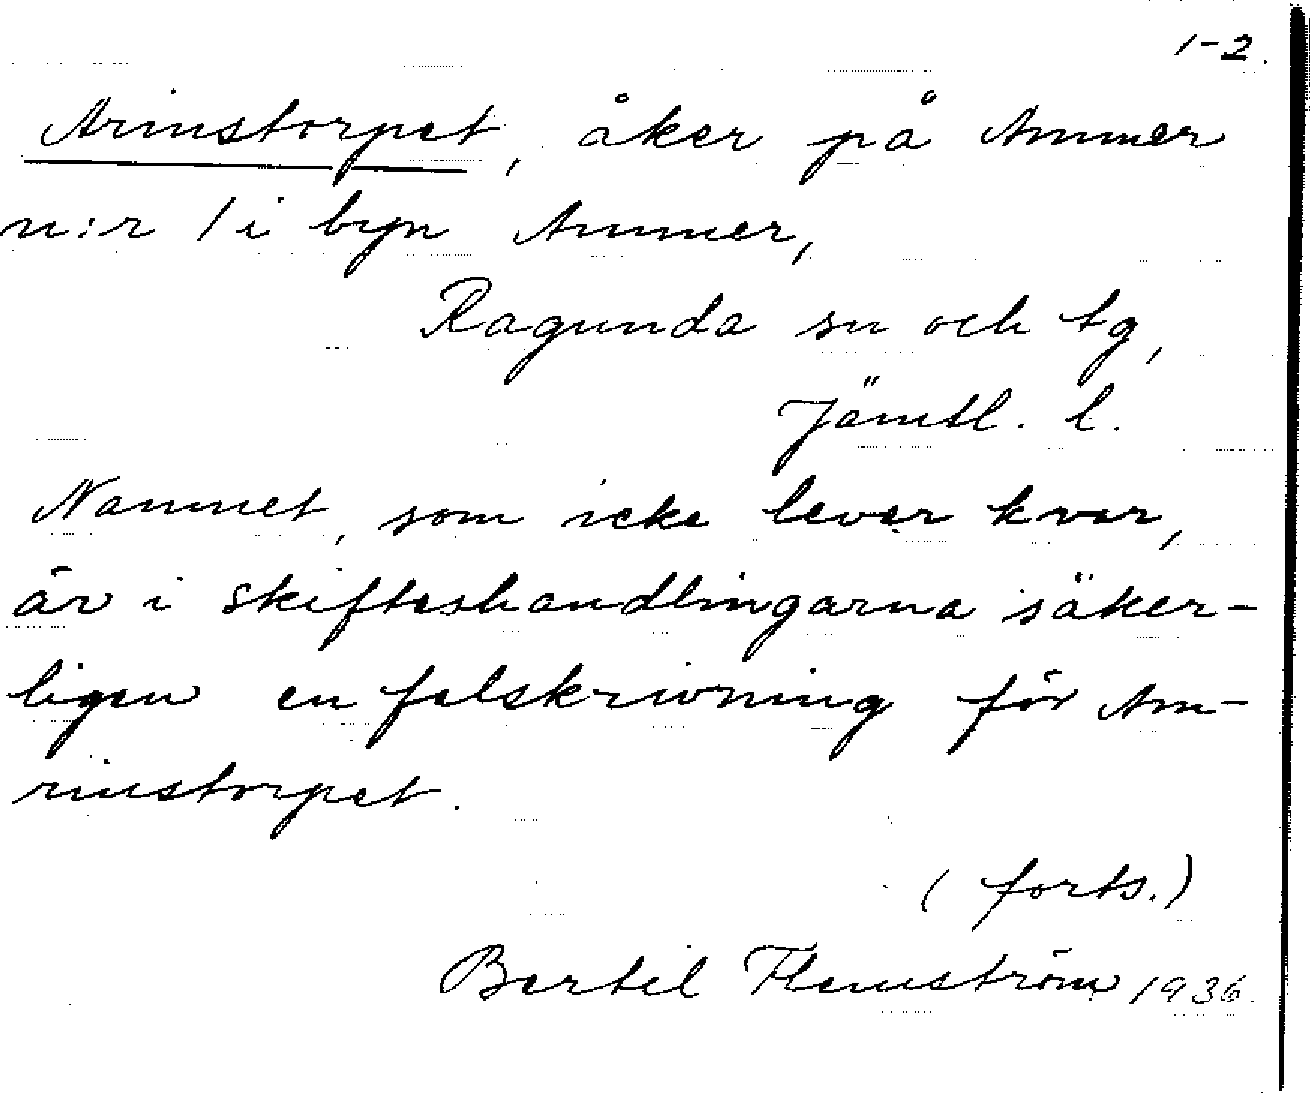 1-2.
Arinstorpet, åker på Ammer
n:r 1 i byn Ammer,
Ragunda sn och tg,
Jämtl. l.
Namnet, som icke lever kvar,
är i skifteshandlingarna säker-
ligen en felskrivning för Am-
rinstorpet.
(forts.)
Bertil Flemström 1936.